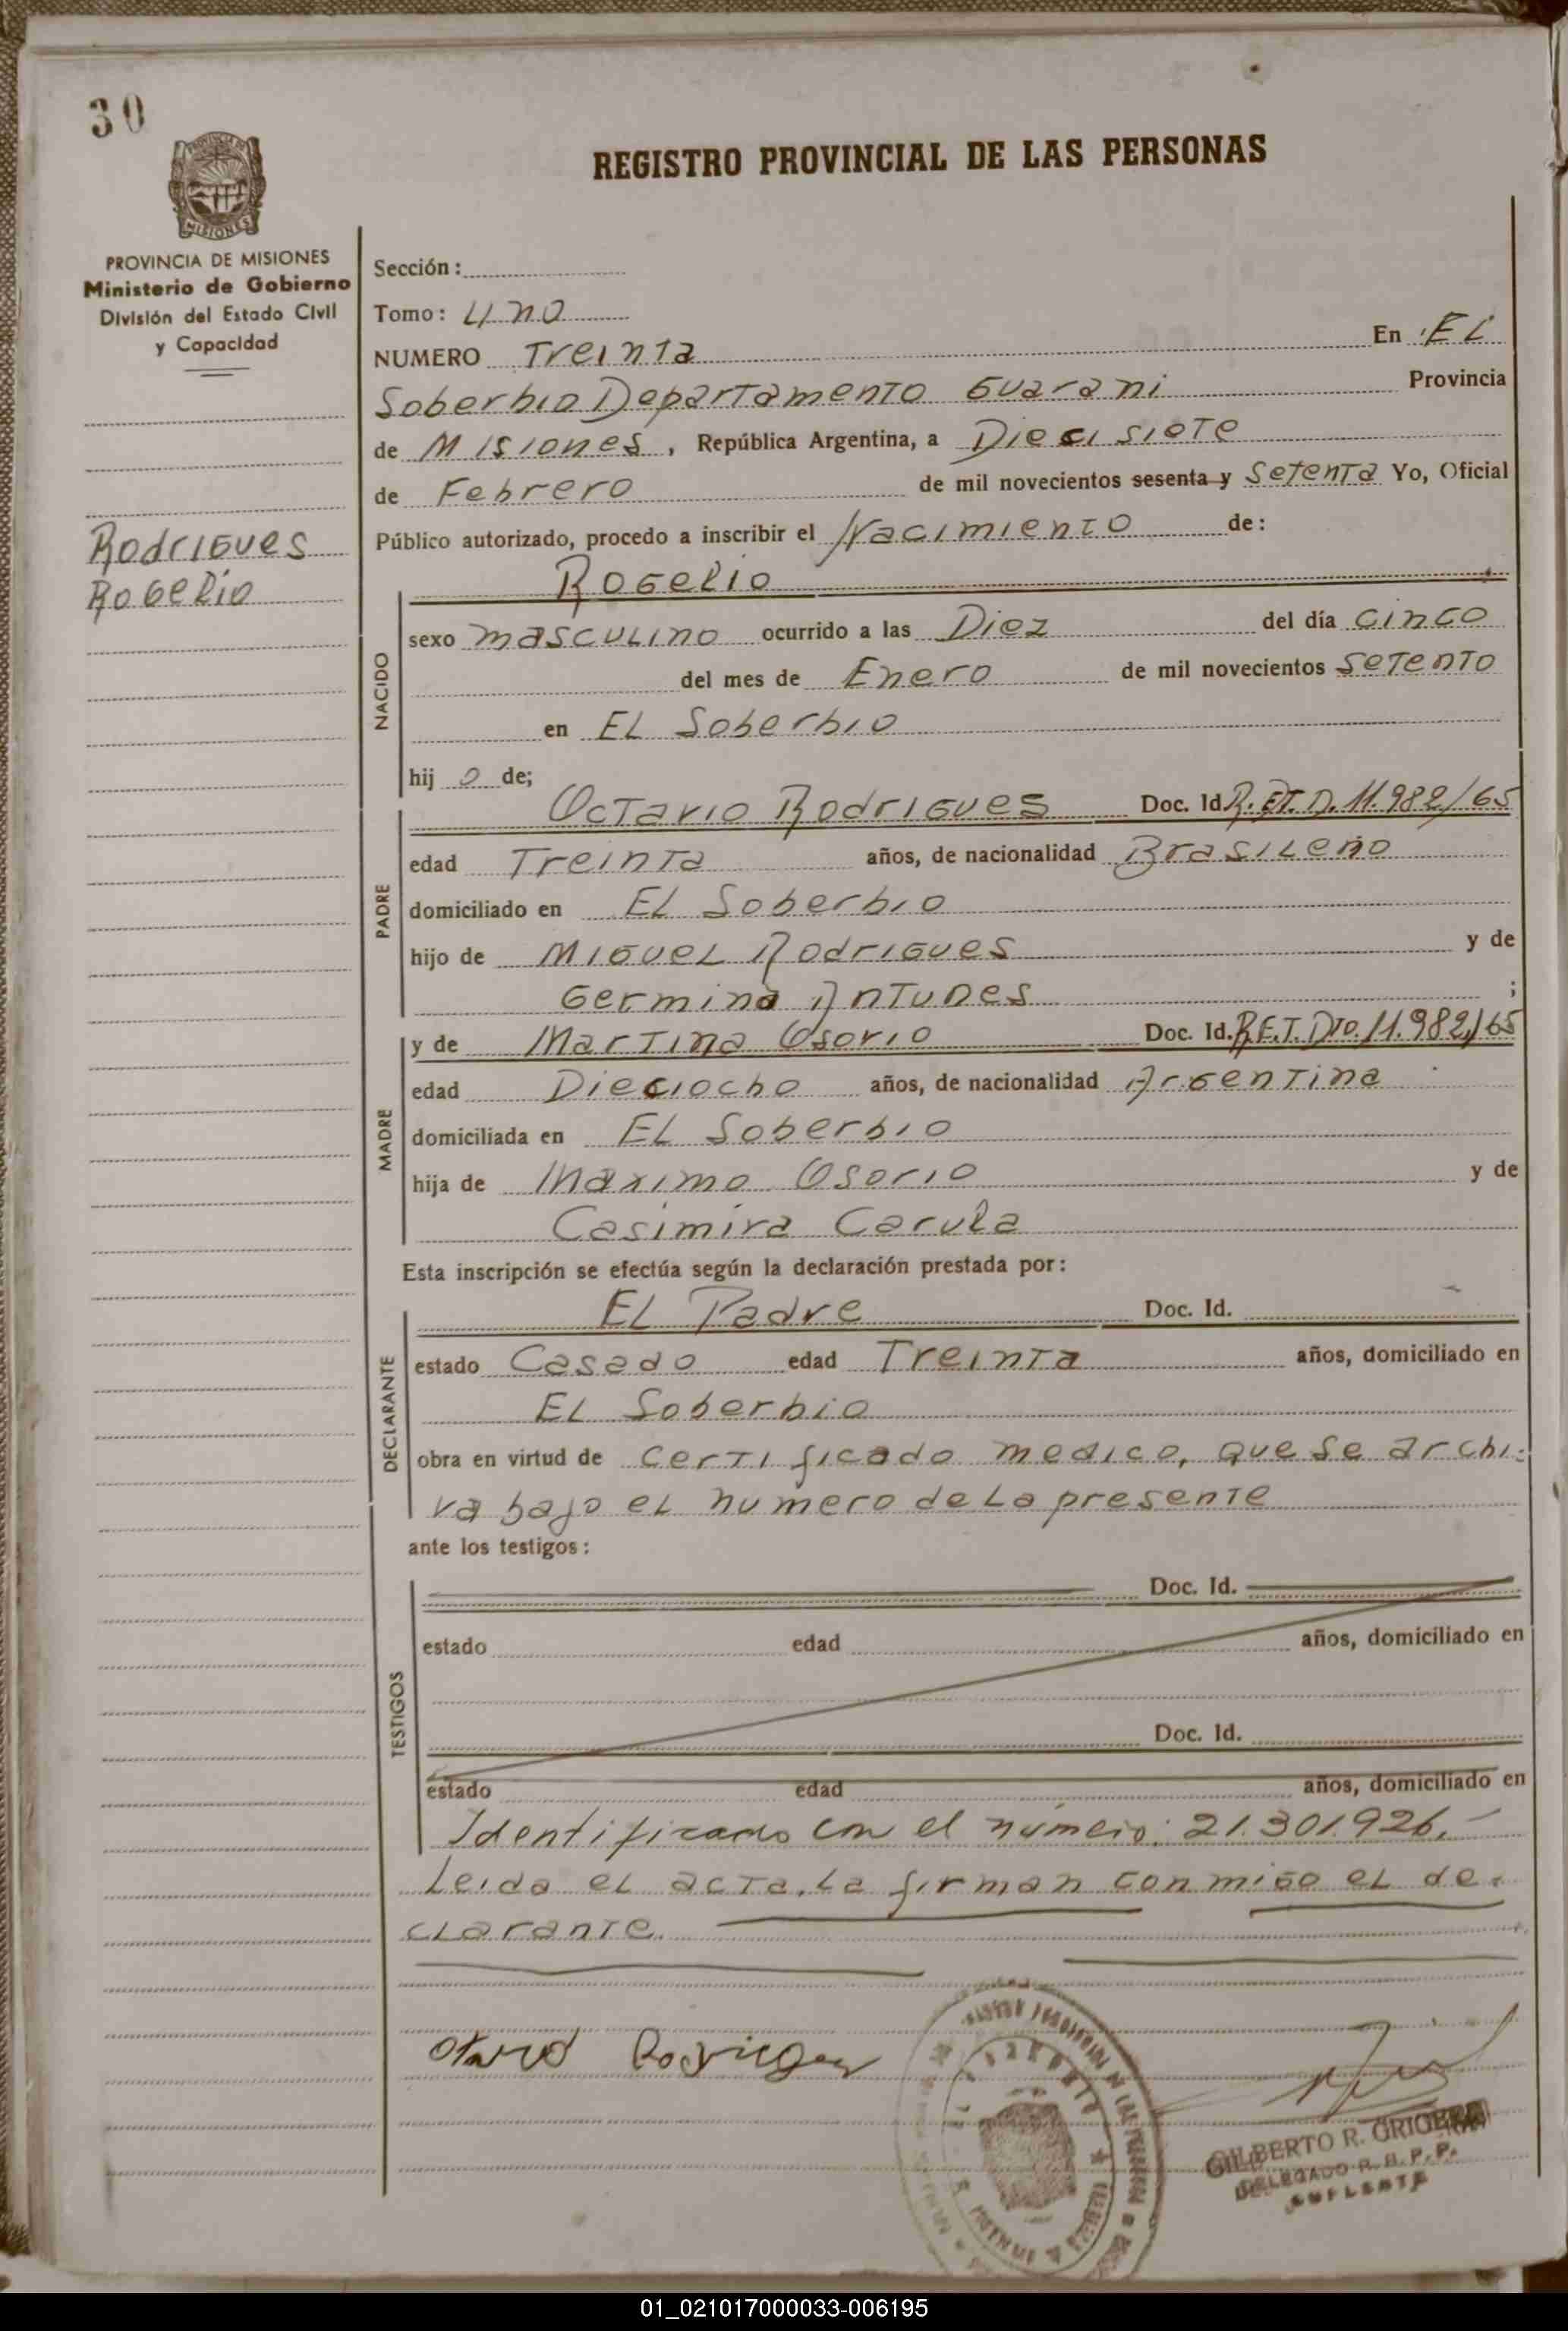 30
REGISTRO PROVINCIAL DE LAS PERSONAS
MISIONES
PROVINCIA DE MISIONES
Ministerio de Gobierno
División del Estado Civil
y Capacidad
Rodrigues
Rogelio
Sección:
Tomo: Uno
NUMERO Treinta En El
Soberbio Departamento Guarani Provincia
de Misiones, República Argentina, a Diecisiete
de Febrero de mil novecientos sesenta y Setenta Yo, Oficial
Público autorizado, procedo a inscribir el Nacimiento de:
NACIDO
Rogelio
sexo masculino ocurrido a las Diez del día cinco
del mes de Enero de mil novecientos setento
en El Soberbio
hij o de;
PADRE
Octavio Rodrigues Doc. Id. R. ET. D. 11.982/65
edad Treinta años, de nacionalidad Brasileño
domiciliado en El Soberbio
hijo de Miguel Rodrigues y de
Germina Antunes ;
MADRE
y de Martina Osorio Doc. Id. R.E.T. Dto. 11.982/65
edad Dieciocho años, de nacionalidad Argentina
domiciliada en El Soberbio
hija de Maximo Osorio y de
Casimira Carula
Esta inscripción se efectúa según la declaración prestada por:
DECLARANTE
El Padre Doc. Id.
estado Casado edad Treinta años, domiciliado en
El Soberbio
obra en virtud de certificado medico, que se archi-
va bajo el numero de la presente
ante los testigos:
TESTIGOS
Doc. Id.
estado edad años, domiciliado en
Doc. Id.
estado edad años, domiciliado en
Identificado con el número: 21.301.926.-
Leida el acta, la firman conmigo el de-
clarante.
GILBERTO R. GRIGERA
DELEGADO R. P. P.
SUPLENTE
01_021017000033-006195